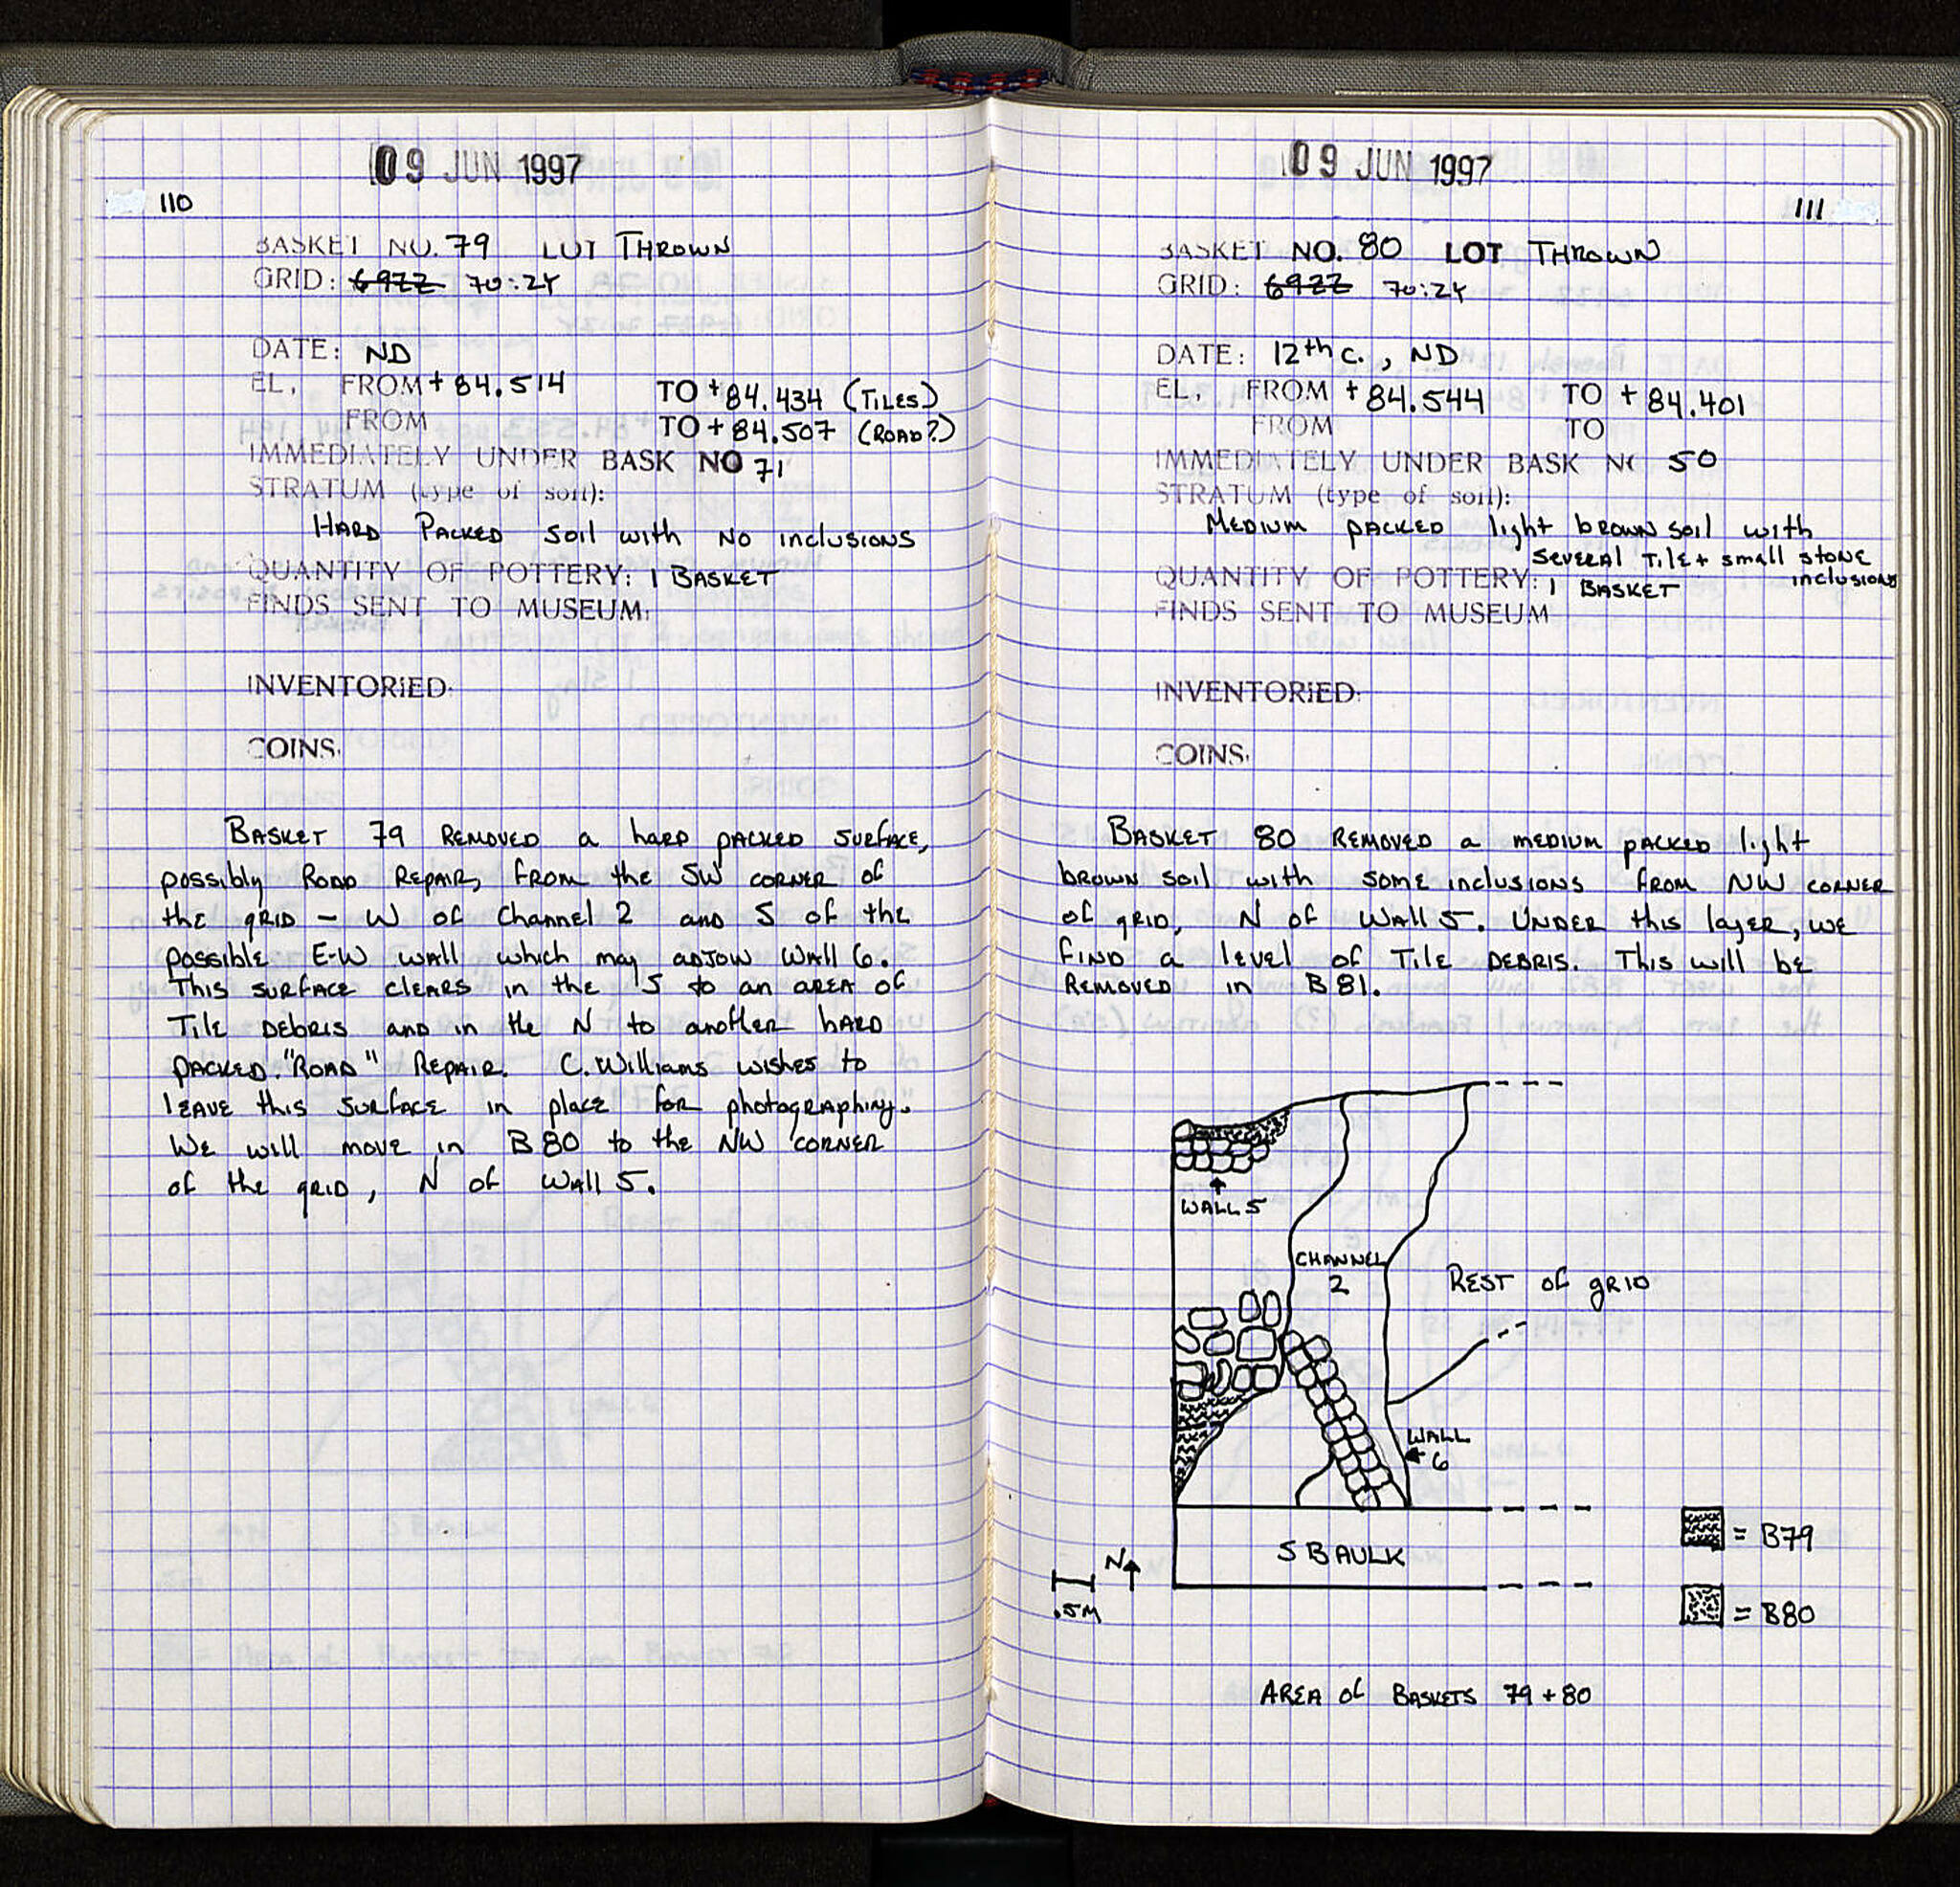 09 JUN 1997
110
BASKET NO. 79 LOT THROWN
GRID: 69ZZ 70:ZY
DATE: ND
EL, FROM + 84.514 TO + 84.434 (TILES)
FROM TO + 84.507 (ROAD?)
IMMEDIATELY UNDER BASK NO 71
STRATUM (type of soil):
HARD PACKED SOIL with NO INCLUSIONS
QUANTITY OF POTTERY: 1 BASKET
FINDS SENT TO MUSEUM:
INVENTORIED:
COINS.
BASKET 79 REMOVED a hard packed surface,
possibly ROAD REPAIR, from the SW CORNER of
the grid – W of Channel 2 and S of the
possible E-W wall which may adjoin Wall 6.
This surface clears in the S to an area of
Tile debris and in the N to another hard
packed "ROAD" REPAIR. C. Williams wishes to
leave this surface in place for photographing.
We will move in B 80 to the NW corner
of the grid, N of Wall 5.
09 JUN 1997
111
BASKET NO. 80 LOT THROWN
GRID: 69ZZ 70:ZY
DATE: 12th c., ND
EL, FROM + 84.544 TO + 84.401
FROM TO
IMMEDIATELY UNDER BASK NO 50
STRATUM (type of soil):
MEDIUM packed light brown soil with
several tile + small stone
inclusions
QUANTITY OF POTTERY: 1 BASKET
FINDS SENT TO MUSEUM
INVENTORIED:
COINS.
BASKET 80 REMOVED a medium packed light
brown soil with some inclusions from NW corner
of grid, N of Wall 5. Under this layer, we
find a level of Tile debris. This will be
removed in B 81.
WALL 5
CHANNEL
2
REST of grid
WALL
6
S BAULK
N
.5M
= B79
= B80
AREA of BASKETS 79 + 80